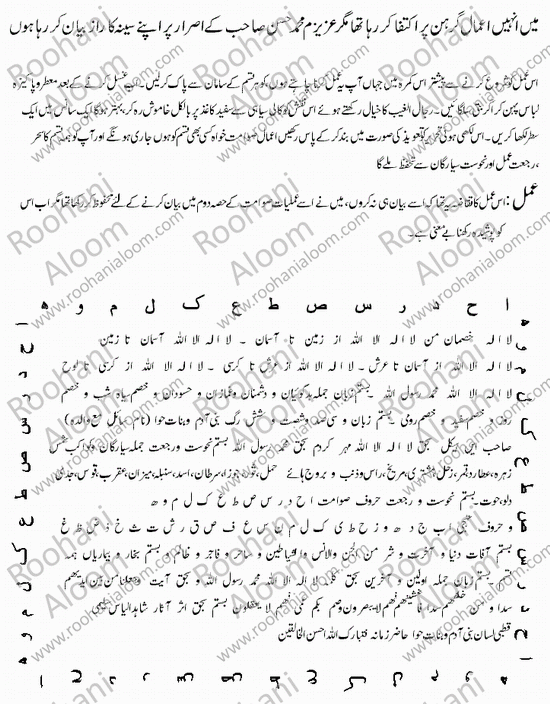 میں انہیں اعمال گرہن پر اکتفا کر رہا تھا مگر عزیزم محمد حسن صاحب کے اصرار پر اپنے سینہ کا راز بیان کر رہا ہوں
اس عمل کو شروع کرنے سے پیشتر اس کمرہ میں جہاں آپ یہ عمل کرنا چاہتے ہوں کو ہر قسم کے سامان سے پاک کر لیں۔ اب غسل کرنے کے بعد معطر و پاکیزہ
لباس پہن کر اگر بتی سلگائیں۔ رجال الغیب کا خیال رکھتے ہوئے اس نقش کو کالی سیاہی سے سفید کاغذ پر بالکل خاموش رہ کر، بہتر ہوگا ایک سانس میں ایک
سطر لکھا کریں۔ اس لکھی ہوئی تحریر کو تعویذ کی صورت میں بند کر کے پاس رکھیں اعمال صوامت خواہ کسی بھی قسم کو ہوں جاری ہونگے اور آپ کو ہر قسم کا سحر
، رجعت عمل اور نحوست سیارگان سے تحفظ ملے گا
عمل : اس عمل کا تقاضہ یہ تھا کہ اسے بیان ہی نہ کروں، میں نے اسے عملیات صوامت کے حصہ دوم میں بیان کرنے کے لئے محفوظ کر رکھا تھا مگر اب اس
کو پوشیدہ رکھنا بے معنی ہے۔
ا ح د ر س ص ط ع ک ل م و ہ
لا الہ خصمان من لا الہ الا اللہ از زمین تا آسمان ۔ لا الہ الا اللہ آسمان تا زمین
لا الہ الا اللہ از آسمان تا عرش ۔ لا الہ الا اللہ از عرش تا کرسی ۔ لا الہ الا اللہ از کرسی تا لوح
لا الہ الا اللہ محمد رسول اللہ بستم زبان جملہ بدگویان و دشمنان و غمازان و حسودان و خصم سیاہ شب و خصم
روز و خصم سفید و خصم رومی بستم زبان و سی صد و شصت و شش رگ بنی آدم و بنات حوا (نام سائل مع والدہ)
صاحب ایں ہیکل بحق لا الہ الا اللہ مہر کردم بحق محمد رسول اللہ بستم نحوست و رجعت جملہ سیارگان و کواکب شمس
زہرہ، عطارد، قمر، زحل، مشتری، مریخ، راس و ذنب و بروج ہائے حمل، ثور، جوزا، سرطان، اسد، سنبلہ، میزان، عقرب، قوس، جدی
دلو، حوت بستم نحوست و رجعت حروف صوامت ا ح د ر س ص ط ع ک ل م و ہ
و حروف تہجی ا ب ج د ھ و ز ح ط ی ک ل م ن س ع ف ص ق ر ش ت ث خ ذ ض ظ غ
بستم آفات دنیا و آخرت و شر من الجن والانس والشیاطین و ساحر و فاجر و ظالم و بستم بخار و بیماریاں ہمہ
بستم زبان جملہ اولین و آخرین بحق کلمہ لا الہ الا اللہ محمد رسول اللہ و بحق آیت وجعلنا من بین ایدیھم
سدا و من خلفھم سدا فاغشینھم فھم لا یبصرون و صم بکم عمی فھم لا یعقلون بستم بحق اثر آثار شاہد الیاس
قطبی لسان بنی آدم و بنات حوا حاضر زمانہ فتبارک اللہ احسن الخالقین
Roohani Aloom
www.roohanialoom.com